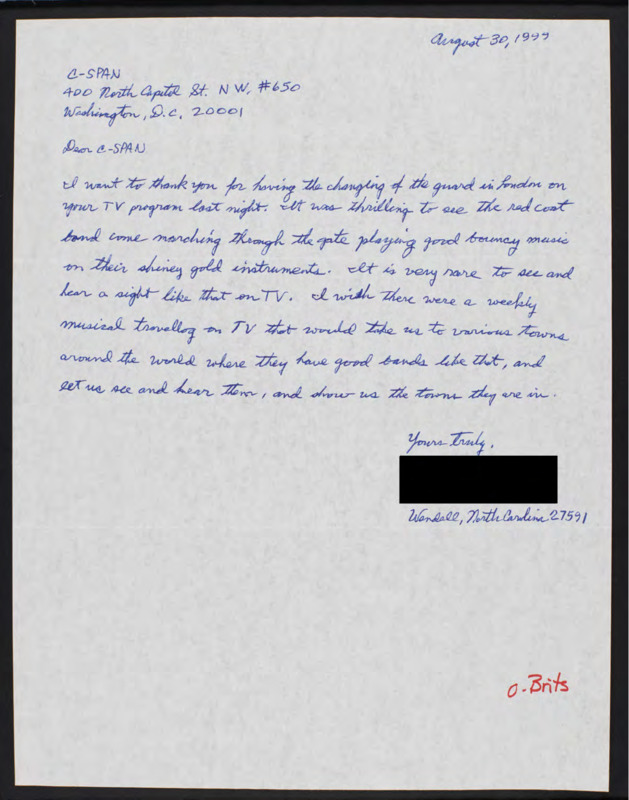 August 30, 1999
C-SPAN
400 North Capitol St. N W, #650
Washington, D.C. 20001
Dear C-SPAN
I want to thank you for having the changing of the guard in London on
your TV program last night. It was thrilling to see the red coat
band come marching through the gate playing good bouncy music
on their shiney gold instruments. It is very rare to see and
hear a sight like that on TV. I wish there were a weekly
musical travellog on TV that would take us to various towns
around the world where they have good bands like that, and
let us see and hear them, and show us the towns they are in.
Yours truly,
Wendell, North Carolina 27591
O-Brits